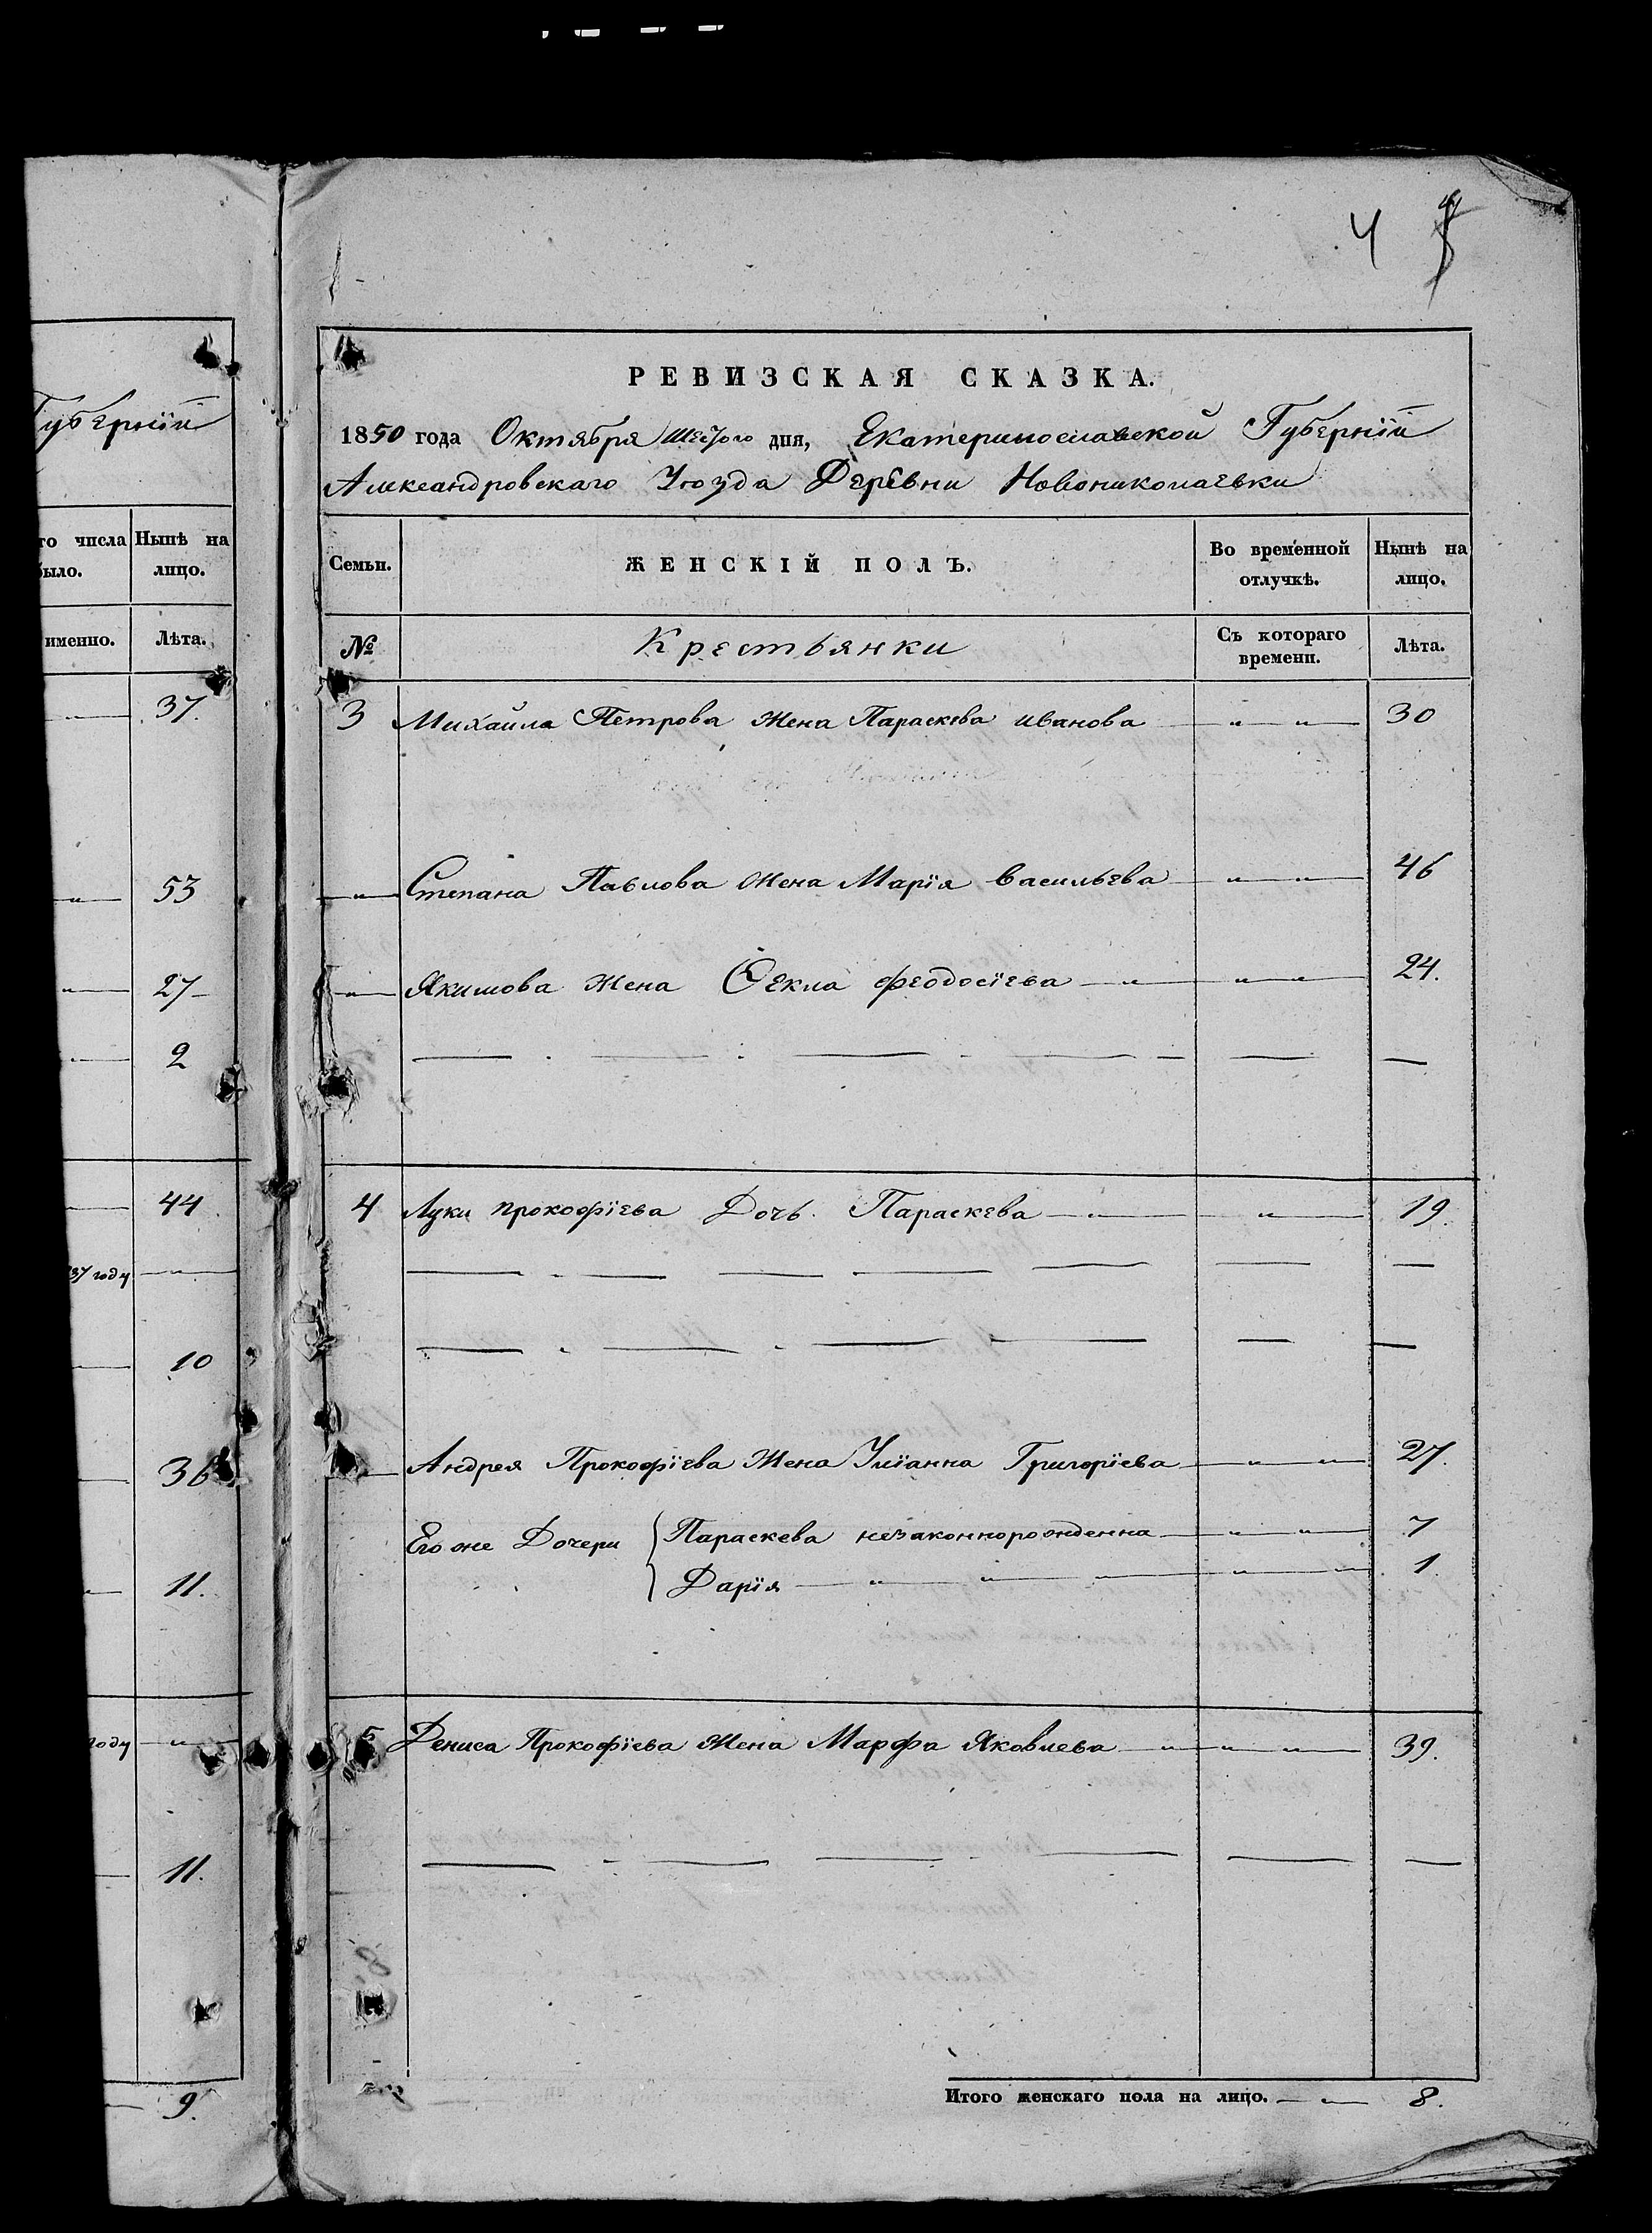 Губернїи
го числа Нынѣ на
было. лицо.
именно. Лѣта.
37.
53
27
2
44
37 году
10
36
11.
году
11.
9.
4
РЕВИЗСКАЯ СКАЗКА.
1850 года Октября шестого дня, Екатеринославской Губернїи
Александровскаго Уѣзда Деревни Новониколаевки
Семьи. ЖЕНСКІЙ ПОЛЪ. Во временной отлучкѣ. Нынѣ на лицо.
№ Крестьянки Съ котораго времени. Лѣта.
3 Михайла Петрова жена Параскева иванова — „ — „ — 30
— „ — Степана Павлова жена Марїя васильева — „ — „ — 46
— „ — Якимова жена Ѳекла феодосїева — „ — „ — „ — 24.
4 Луки прокофїева Дочь Параскева — „ — „ — 19.
— Андрея Прокофїева жена Улїанна Григорїева — „ — „ — 27.
Его же Дочери { Параскева незаконнорожденна — „ — „ — 7
Дарїя — „ — „ — „ — „ — 1.
5 Дениса Прокофїева жена Марфа Яковлева — „ — „ — „ — 39.
Итого женскаго пола на лицо. — „ — 8.